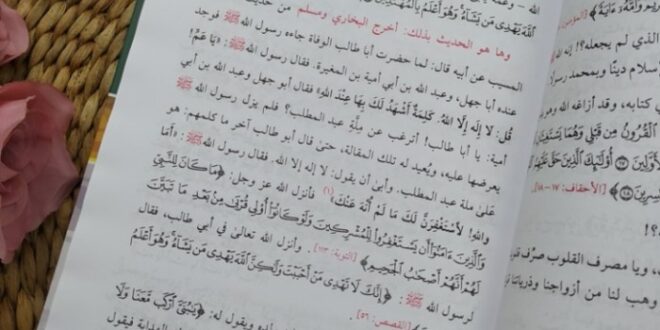 الله – وعمه
ٱللَّهَ يَهْدِى مَن يَشَآءُ ۚ وَهُوَ أَعْلَمُ بِٱلْمُهْتَدِينَ
وها هو الحديث بذلك: أخرج البخاري ومسلم من حديث
المسيب عن أبيه قال: لما حضرت أبا طالب الوفاة جاءه رسول الله ﷺ فوجد
عنده أبا جهل، وعبد الله بن أبي أمية بن المغيرة. فقال رسول الله ﷺ: «يَا عَمِّ!
قُل: لَا إِلَهَ إِلَّا اللهُ؛ كَلِمَةً أَشْهَدُ لَكَ بِهَا عِنْدَ اللهِ» فقال أبو جهل وعبد الله بن أبي
أمية: يا أبا طالب! أترغب عن مِلَّةِ عبد المطلب؟ فلم يزل رسول الله ﷺ
يعرضها عليه، ويُعيد له تلك المقالة، حتى قال أبو طالب آخر ما كلمهم: هو
عَلَىٰ ملة عبد المطلب. وأبىٰ أن يقول: لا إله إلا الله. فقال رسول الله ﷺ: «أَمَا
والله! لأَسْتَغْفِرَنَّ لَكَ مَا لَمْ أُنْهَ عَنْكَ»(١) فأنزل الله عز وجل: ﴿مَا كَانَ لِلنَّبِيِّ
وَٱلَّذِينَ ءَامَنُوٓا۟ أَن يَسْتَغْفِرُوا۟ لِلْمُشْرِكِينَ وَلَوْ كَانُوٓا۟ أُو۟لِى قُرْبَىٰ مِنۢ بَعْدِ مَا تَبَيَّنَ
لَهُمْ أَنَّهُمْ أَصْحَٰبُ ٱلْجَحِيمِ﴾ [التوبة: ١١٣]. وأنزل الله تعالىٰ في أبي طالب، فقال
لرسول الله ﷺ: ﴿إِنَّكَ لَا تَهْدِى مَنْ أَحْبَبْتَ وَلَٰكِنَّ ٱللَّهَ يَهْدِى مَن يَشَآءُ ۚ وَهُوَ أَعْلَمُ
[القصص: ٥٦]
ويقول له: ﴿يَٰبُنَىَّ ٱرْكَب مَّعَنَا وَلَا
فيقول
الذي لم يجعله؟! إنه الله
سلام دينًا وبمحمد رسولًا
كتابه، وقد أزاغه الله
ٱلْقُرُونُ مِن قَبْلِى وَهُمَا يَسْتَغِيثَانِ
أُو۟لَٰٓئِكَ ٱلَّذِينَ حَقَّ عَلَيْهِمُ
[الأحقاف: ١٧-١٨]
ويا مصرف القلوب صرِّف
وهب لنا من أزواجنا وذرياتنا